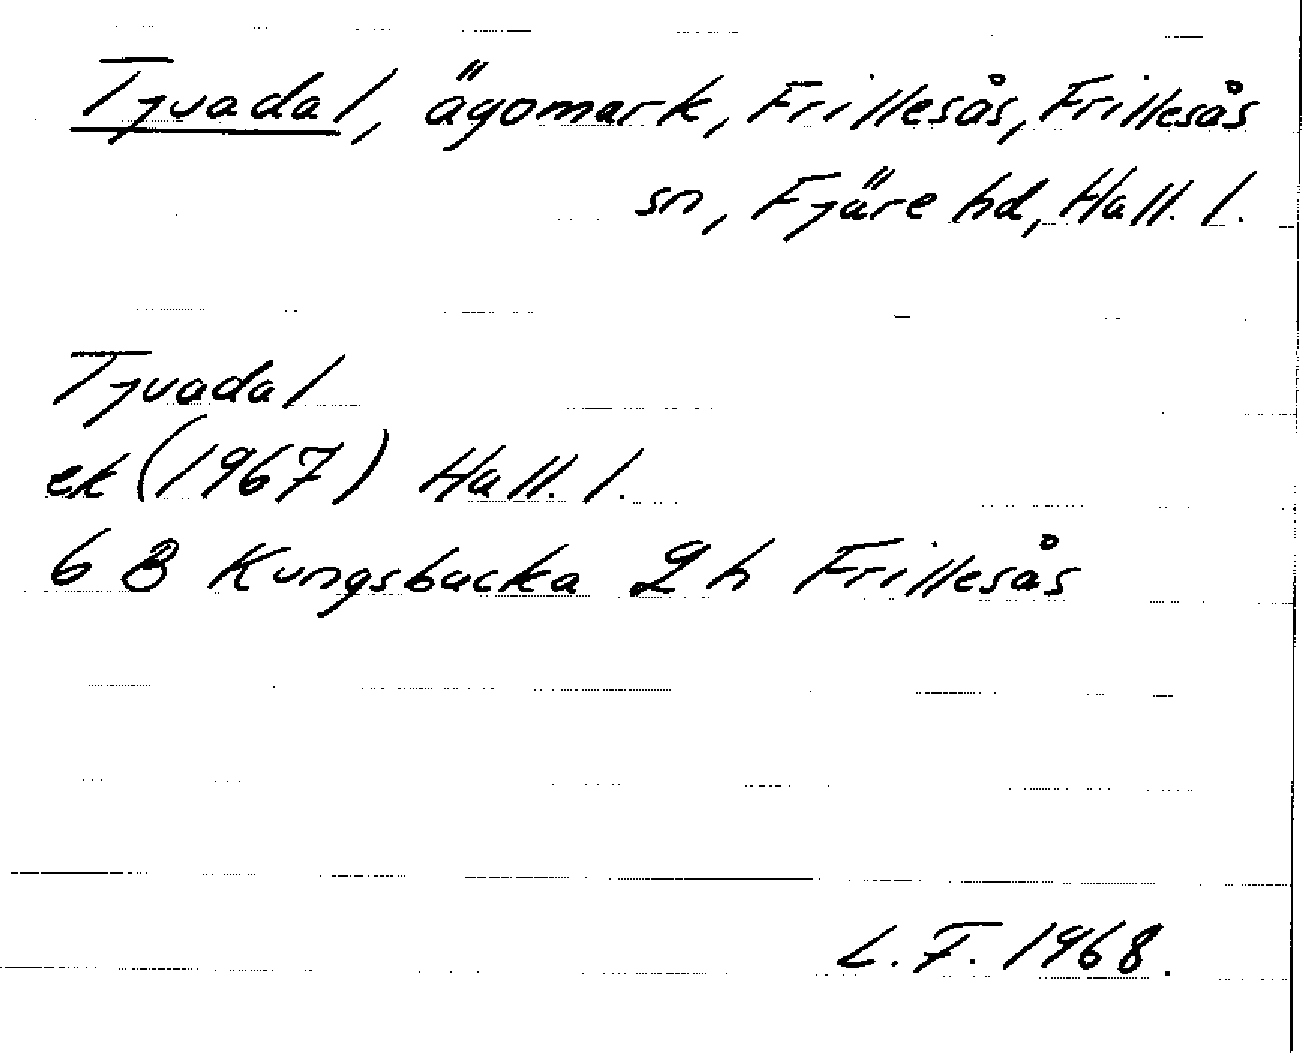 Tjuadal, ägomark, Frillesås, Frillesås
sn, Fjäre hd, Hall. l.
Tjuadal
ek (1967) Hall. l.
6 B Kungsbacka 2 h Frillesås
L. F. 1968.